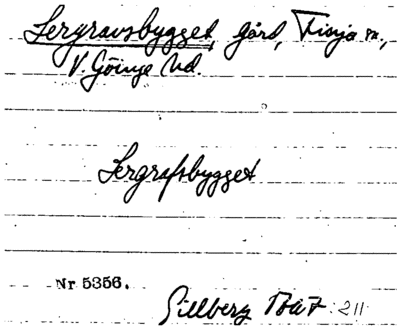 Lergravsbygget, gård, Finja sn.,
V. Göinge hd.
Lergrafsbygget
Nr 5356.
Gillberg 211